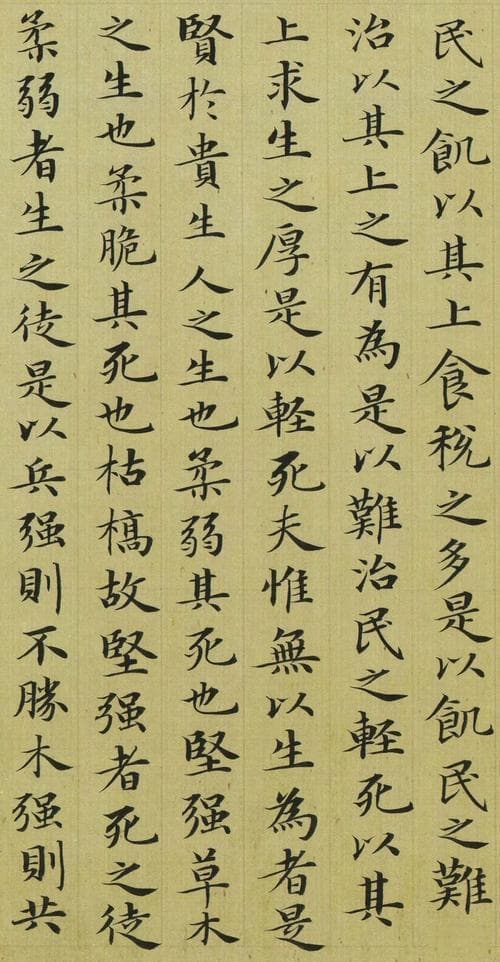 民之飢以其上食稅之多是以飢民之難
治以其上之有為是以難治民之軽死以其
上求生之厚是以軽死夫惟無以生為者是
賢於貴生人之生也柔弱其死也堅强草木
之生也柔脆其死也枯槁故堅强者死之徒
柔弱者生之徒是以兵强則不勝木强則共